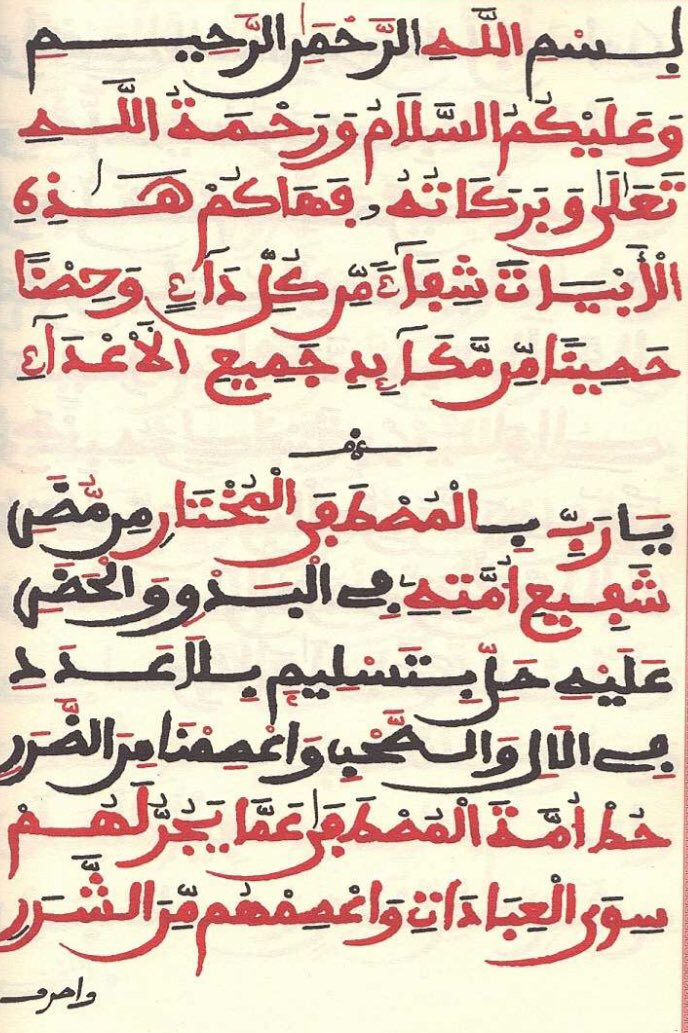 بِسْمِ اللَّهِ الرَّحْمَٰنِ الرَّحِيمِ
وَعَلَيْكُمُ السَّلَامُ وَرَحْمَةُ اللَّهِ
تَعَالَىٰ وَبَرَكَاتُهُ وَفَهَاكُمْ هَٰذِهِ
الْأَبْيَاتَ شِفَآءً مِّن كُلِّ دَآءٍ وَحِصْنًا
حَصِينًا مِّن مَّكَآئِدِ جَمِيعِ الْأَعْدَآءِ
يَا رَبِّ بِالْمُصْطَفَى الْمُخْتَارِ مِن مُّضَرِ
شَفِيعِ أُمَّتِهِ فِي الْبَدْوِ وَالْحَضَرِ
عَلَيْهِ صَلِّ بِتَسْلِيمٍ بِلَا عَدَدٍ
فِي الْآلِ وَالصَّحْبِ وَاعْصِمْنَا مِنَ الضَّرَرِ
حُطْ أُمَّةَ الْمُصْطَفَىٰ عَمَّا يَجُرُّ لَهُمْ
سِوَى الْعِبَادَاتِ وَاعْصِمْهُم مِّنَ الشَّرَرِ
واصرف